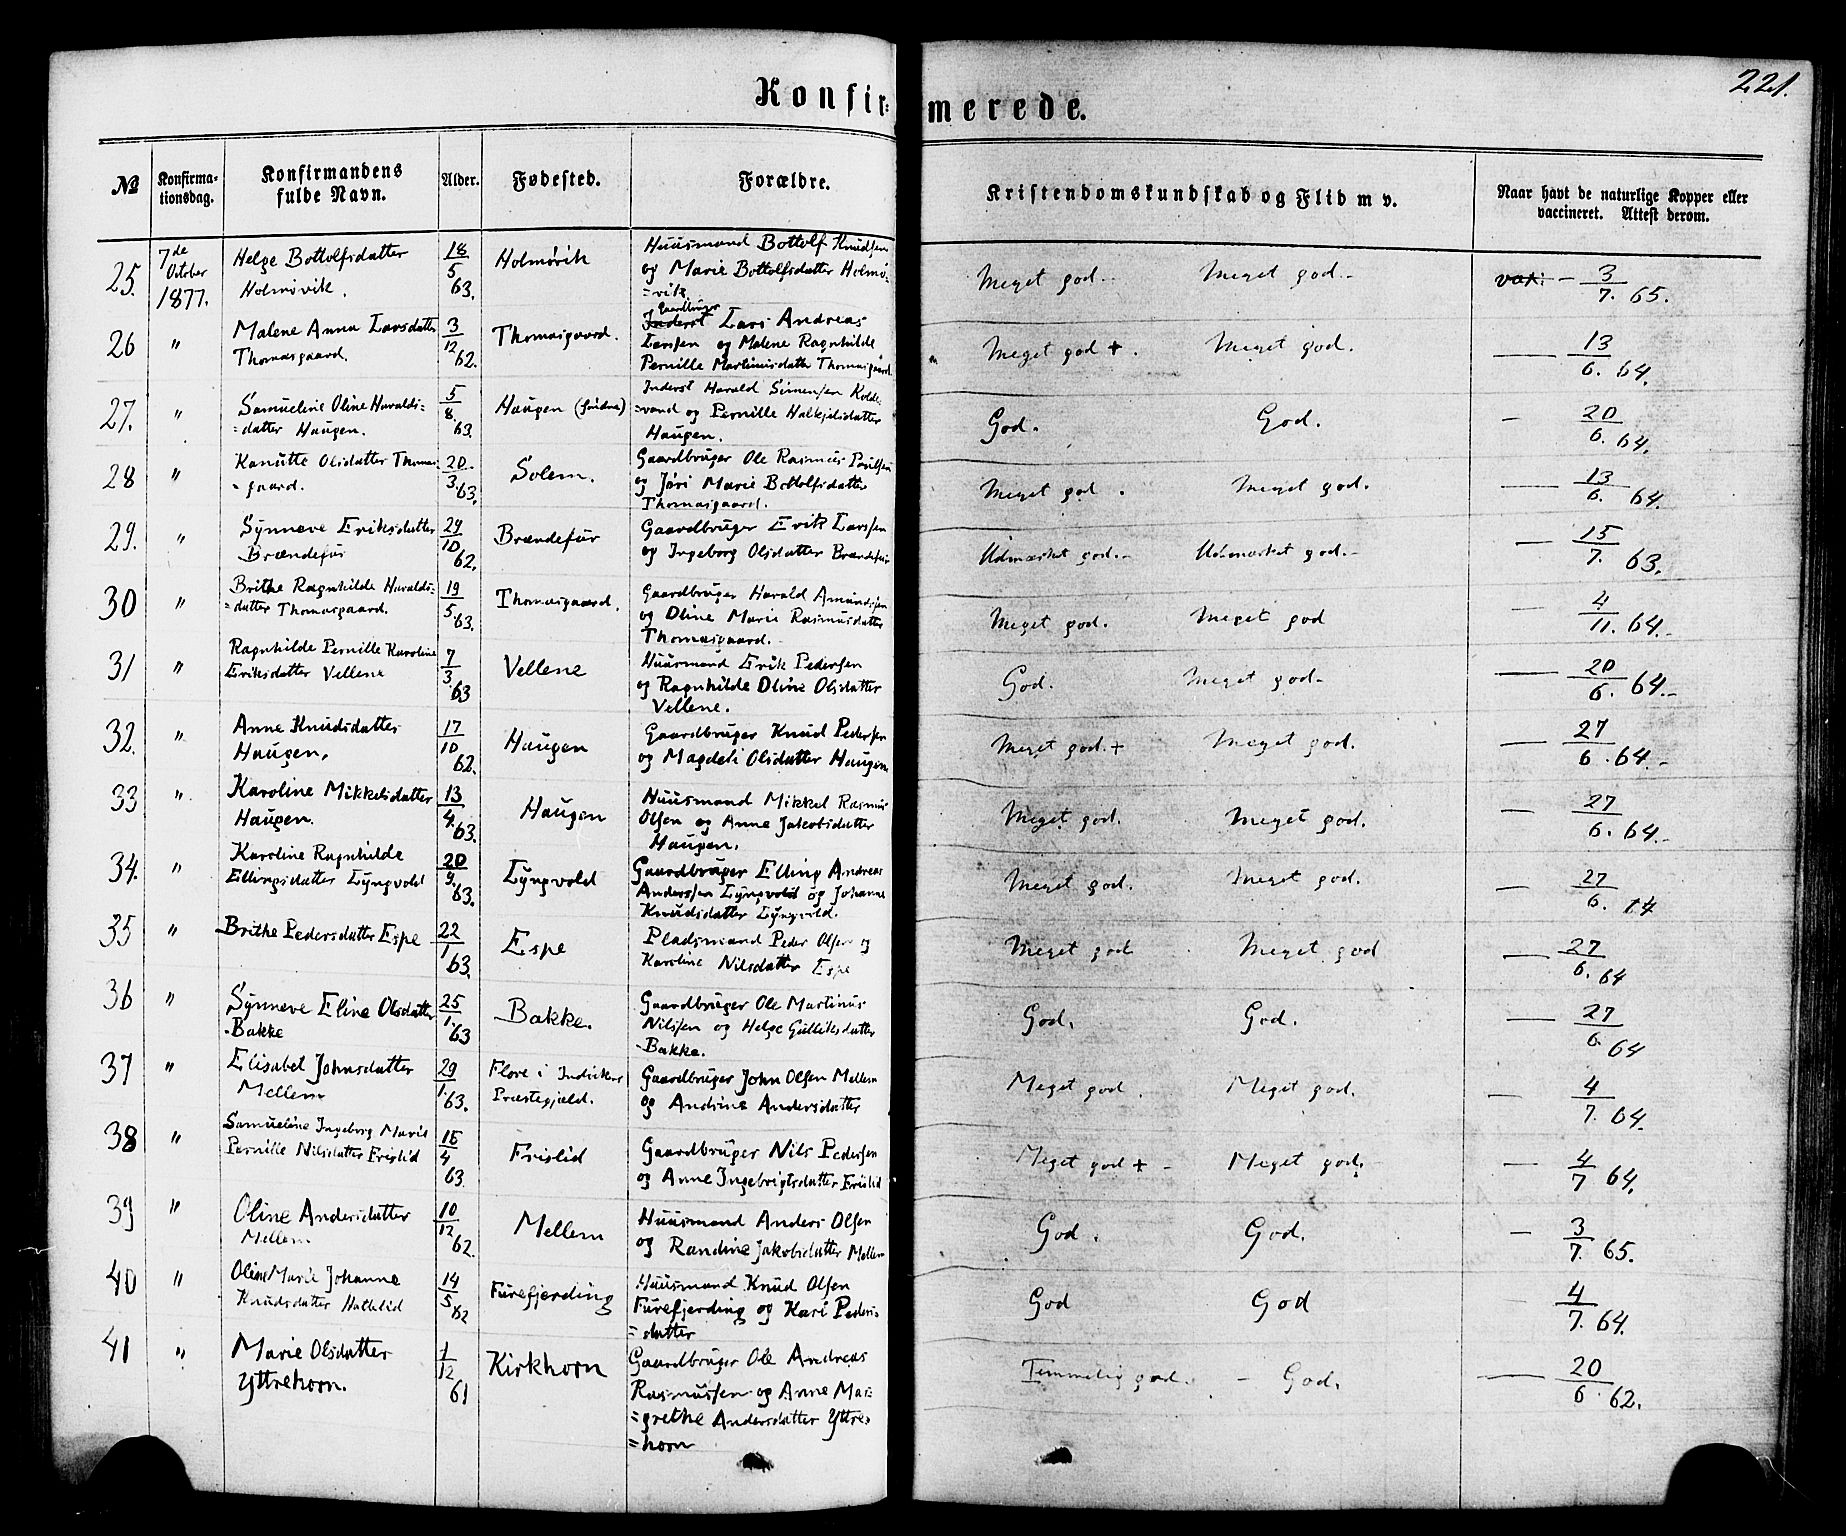 221.
Konfirmerede.
№ Konfirmationsdag. Konfirmandens fulde Navn. Alder. Fødested. Forældre. Kristendomskundskab og Flid m v. Naar havt de naturlige Kopper eller vaccineret. Attest derom.
25. 7de October 1877. Helge Bottolfsdatter Holmøvik. 18/5 63. Holmøvik Huusmand Bottolf Knudsen og Marie Bottolfsdatter Holmø=vik Meget god.- Meget god.- vak. - 3/7. 65.
26 " Malene Anna Larsdatter Thomasgaard. 3/12 62. Thomasgaard. Gaardbruger Lars Andreas Larssen og Malene Ragnhilde Pernille Martinusdatter Thomasgaard Meget god +. Meget god. — 13/6. 64.
27. " Samueline Oline Haralds=datter Haugen. 5/8. 63. Haugen Inderst Harald Simensen Kolde=vand og Pernille Halkjelsdatter Haugen. God. God. - 20/6. 64.
28 " Kanutte Olsdatter Thomas=gaard. 20/3. 63. Solem. Gaardbruger Ole Rasmus Paulsen og Jøri Marie Bottolfsdatter Thomasgaard. Meget god. Meget god. — 13/6. 64.
29. " Synneve Eriksdatter Brændefur 29/10 62. Brændefur Gaardbruger Erik Larssen og Ingeborg Olsdatter Brændefur Udmærket god.- Udmærket god.- — 15/7. 63.
30 " Brithe Ragnhilde Haralds=datter Thomasgaard. 19/5. 63. Thomasgaard. Gaardbruger Harald Amundsen og Oline Marie Rasmusdatter Thomasgaard. Meget god. Meget god — 4/11. 64.-
31 " Ragnhilde Pernille Karoline Eriksdatter Vellene 7/3. 63 Vellene Huusmand Erik Pedersen og Ragnhilde Oline Olsdatter Vellene. God. Meget god- — 20/6. 64.-
32. " Anne Knudsdatter Haugen. 17/10 62. Haugen Gaardbruger Knud Pedersen og Magdeli Olsdatter Haugen Meget god.+ Meget god. — 27/6. 64.-
33 " Karoline Mikkelsdatter Haugen. 13/4. 63. Haugen Huusmand Mikkel Rasmus Olsen og Anne Jakobsdatter Haugen. Meget god. Meget god. — 27/6. 64.-
34. " Karoline Ragnhilde Ellingsdatter Lyngvold 20/9. 63. Lyngvold Gaardbruger Elling Andreas Anderssen Lyngvold og Johanne Knudsdatter Lyngvold. Meget god. Meget god. — 27/6. 64
35 " Brithe Pedersdatter Espe 22/1 63. Espe Pladsmand Peder Olsen og Karoline Nilsdatter Espe Meget god Meget god — 27/6. 64
36 " Synneve Eline Olsdatter Bakke 25/1. 63 Bakke. Gaardbruger Ole Martinus Nilssen og Helge Gulliksdatter Bakke. God. God. — 27/6. 64
37 " Elisabet Johnsdatter Mellem 29/1. 63. Præstegjæld. Gaardbruger John Olsen Mellem og Andrine Andersdatter Meget god. Meget god. — 4/7. 64.
38 " Samueline Ingeborg Marie Pernille Nilsdatter Frislid 15/4 63. Frislid Gaardbruger Nils Pedersen og Anne Ingebrigtsdatter Frislid Meget god + - Meget god. — 4/7 64.
39 " Oline Andersdatter Mellem 10/12 62. Mellem Huusmand Anders Olsen og Randine Jakobsdatter Mellem God. God. — 3/7. 65.
40 " Oline Marie Johanne Knudsdatter Hatlelid 14/5 62 Furefjærding Huusmand Knud Olsen Furefjerding og Kari Peders=datter God God — 4/7. 64.
41 " Marie Olsdatter Yttrehorn. 1/12 61 Kirkhorn Gaardbruger Ole Andreas Rasmussen og Anne Mar=grethe Andersdatter Yttre=horn Temmelig god. - God. — 20/6. 62.